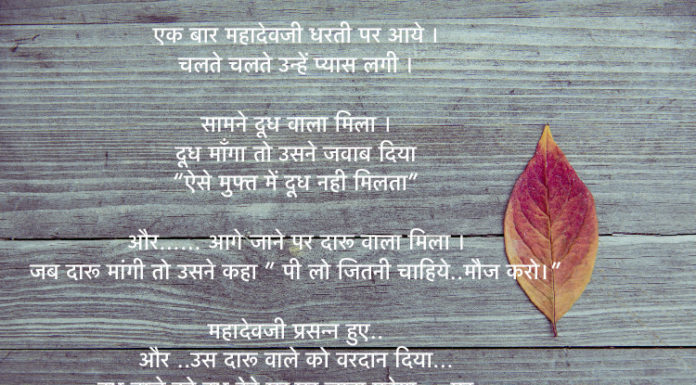 एक बार महादेवजी धरती पर आये ।
चलते चलते उन्हें प्यास लगी ।
सामने दूध वाला मिला ।
दूध माँगा तो उसने जवाब दिया
“ऐसे मुफ्त में दूध नही मिलता”
और…… आगे जाने पर दारू वाला मिला ।
जब दारू मांगी तो उसने कहा ” पी लो जितनी चाहिये..मौज करो।”
महादेवजी प्रसन्न हुए..
और ..उस दारू वाले को वरदान दिया…